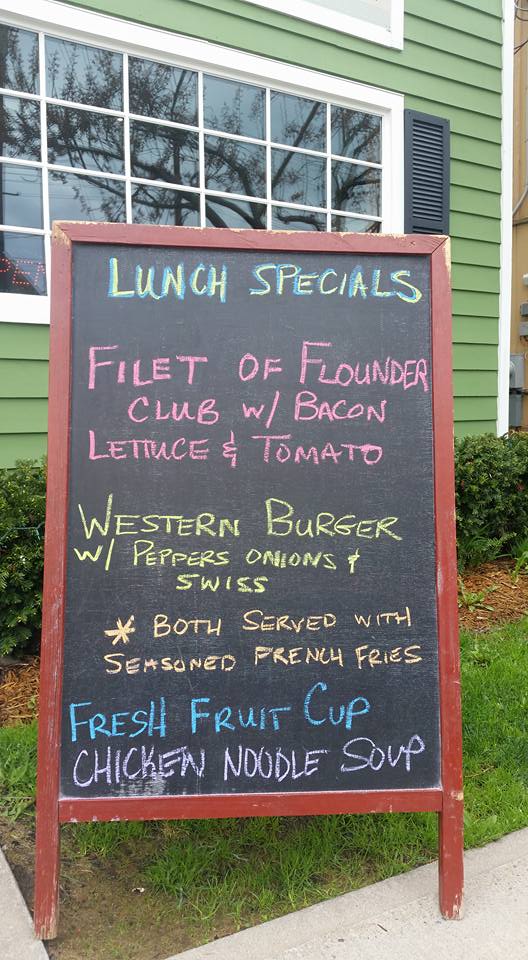 LUNCH SPECIALS
FILET OF FLOUNDER
CLUB W/ BACON
LETTUCE & TOMATO
WESTERN BURGER
W/ PEPPERS ONIONS &
SWISS
* BOTH SERVED WITH
SEASONED FRENCH FRIES
FRESH FRUIT CUP
CHICKEN NOODLE SOUP